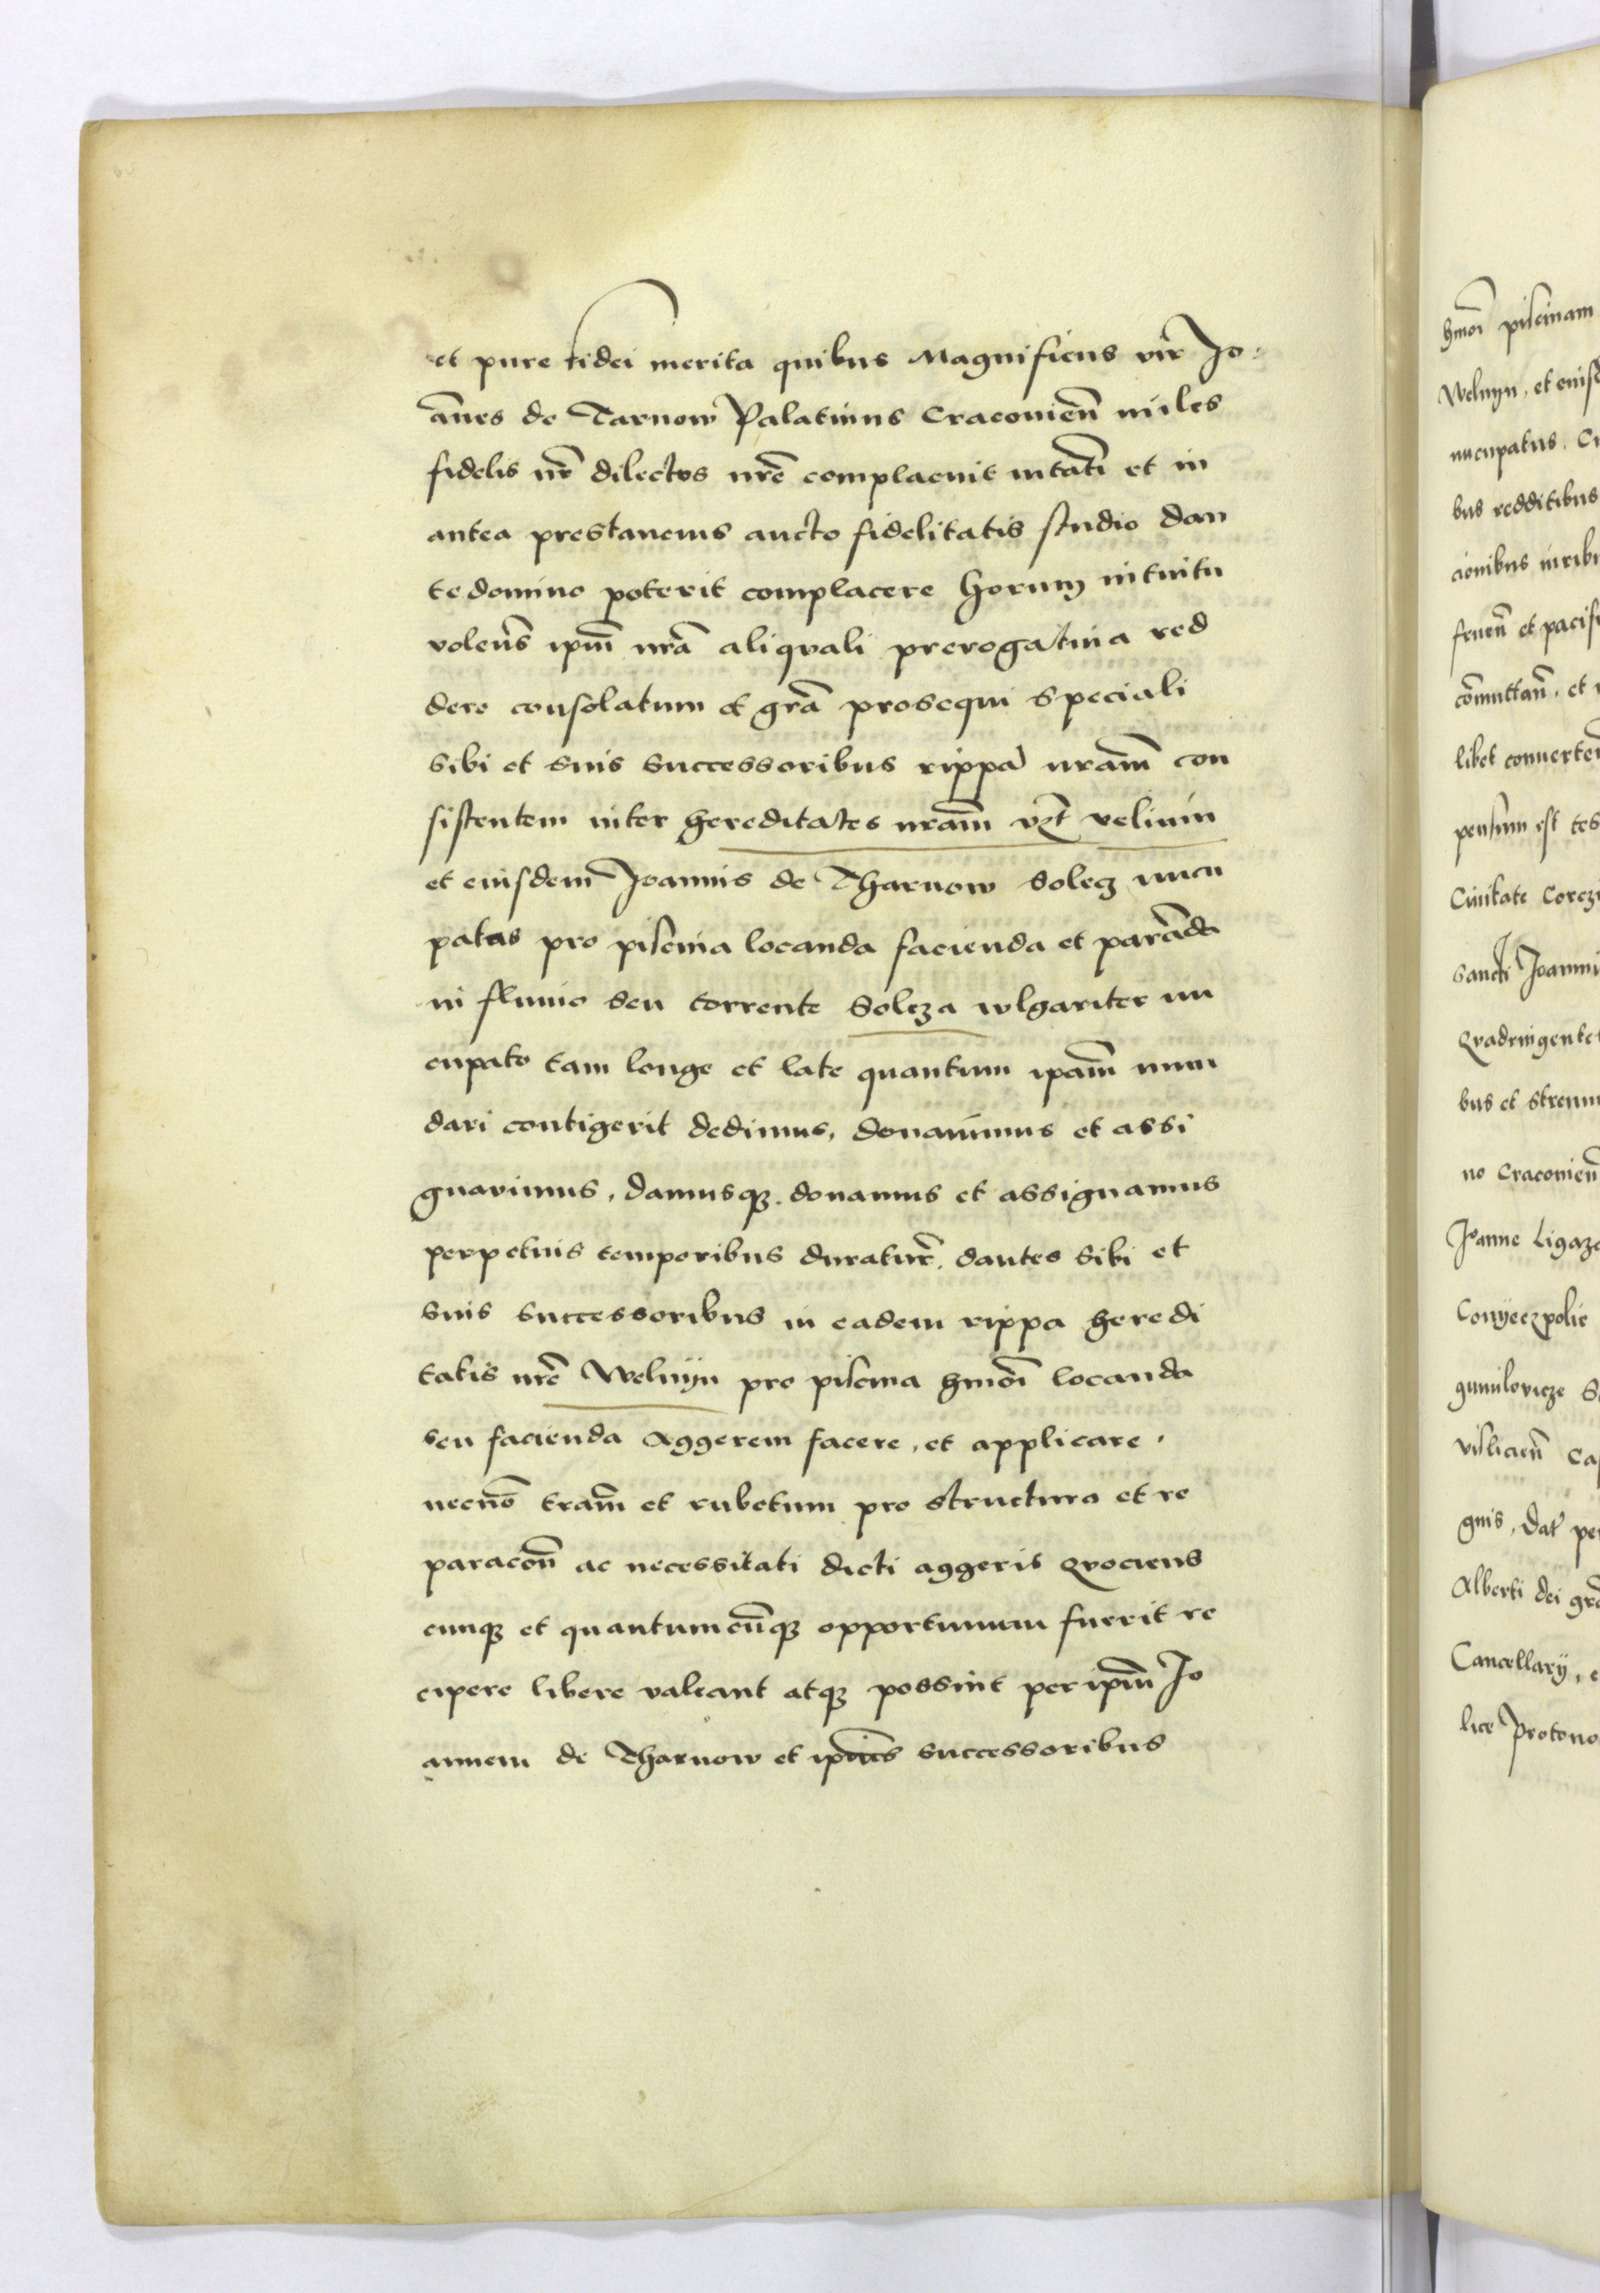 et pure fidei merita quibus Magnificus vir Jo-
ānes de Tarnow Palatinus Cracovieñ miles
fidelis nr̄ dilectus nrē complacuit mtati et in
antea prestancius aucto fidelitatis studio dan
te domino poterit complacere horum intuitu
volen̄s ipm̄ nrā aliquali prerogativa red
dere consolatum et grā prosequi speciali
sibi et suis successoribus rippā nram̄ con
sistentem inter hereditates nram̄ vzt velnin
et eiusdem Joannis de Tharnow Solecz nucu
patas pro piscina locanda facienda et parāda
in fluvio seu torrente Solcza wlgariter nu
cupato tam longe et late quantum ipam̄ inun
dari contigerit dedimus, donavimus et assi
gnavimus, damusqz. donamus et assignamus
perpetuis temporibus duratur̄. dantes sibi et
suis successoribus in eadem rippa heredi
tatis nrē Welnyn pro piscina hmōi locanda
seu facienda Aggerem facere, et applicare.
necnō tram̄ et rubetum pro structura et re
paracoñ ac necessitati dicti aggeris Qvociens
cunqz et quantumcūqz opportunum fuerit re
cipere libere valeant atqz possint per ipm̄ Jo
annem de Tharnow et ipius successoribus
hmōi piscinam
Welnyn, et eiusd
nucupatus. Cu
bus redditibus
cionibus iuribu
frueñ et pacif
cōmuttañ, et
libet converteñ
pensum est tes
Civitate Corczi
Sancti Joanni
Qvadringente
bus et Strenu
no Cracovieñ
Joanne Ligaza
Conyeczpolie
gumilovicze S
visliciēn Cas
gnis, Dat̄ per
Alberti dei grā
Cancellarij, e
lice Protono